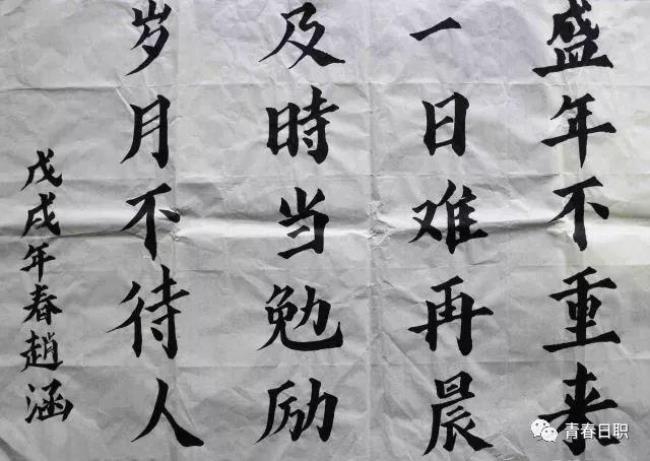 盛年不重来
一日难再晨
及時当勉励
岁月不待人
戊戌年春趙涵
青春日职